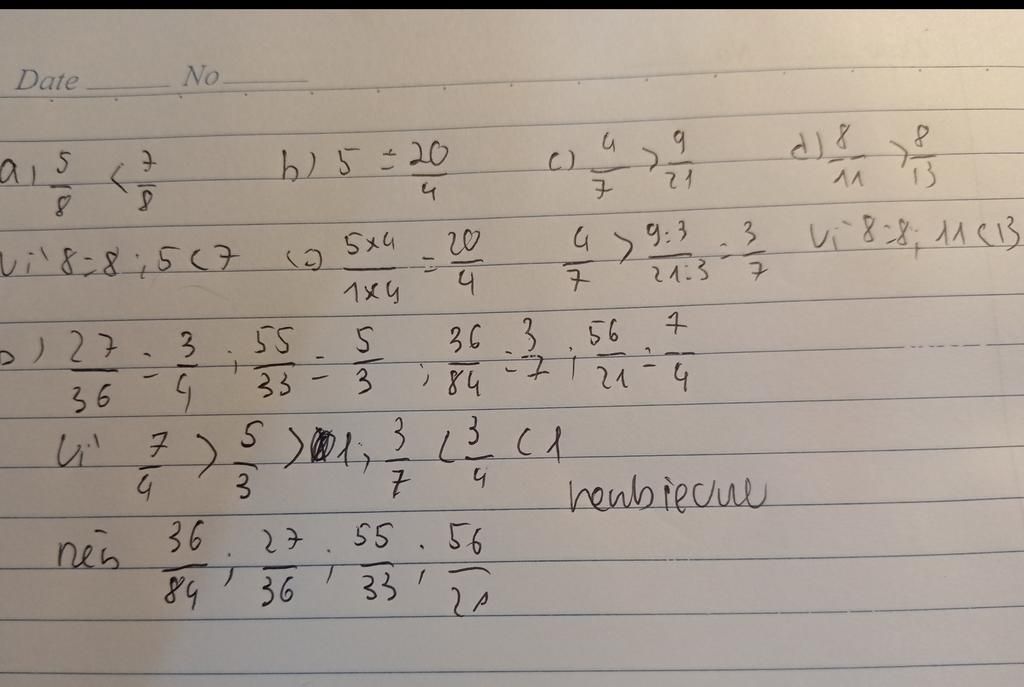 Date No
a) 5/8 < 7/8 b) 5 = 20/4 c) 4/7 > 9/21 d) 8/11 > 8/13
Vì 8=8; 5<7 (=) 5×4/1×4 = 20/4 4/7 > 9:3/21:3 = 3/7 Vì 8=8; 11<13
) 27/36 = 3/4 ; 55/33 = 5/3 ; 36/84 = 3/7 ; 56/21 = 7/4
Vì 7/4 > 5/3 > 1; 3/7 < 3/4 < 1
nên 36/84 ; 27/36 ; 55/33 ; 56/21